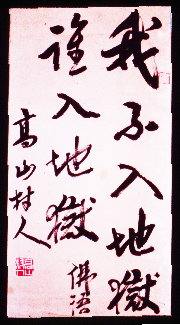 我不入地獄
誰入地獄
佛語
高山村人